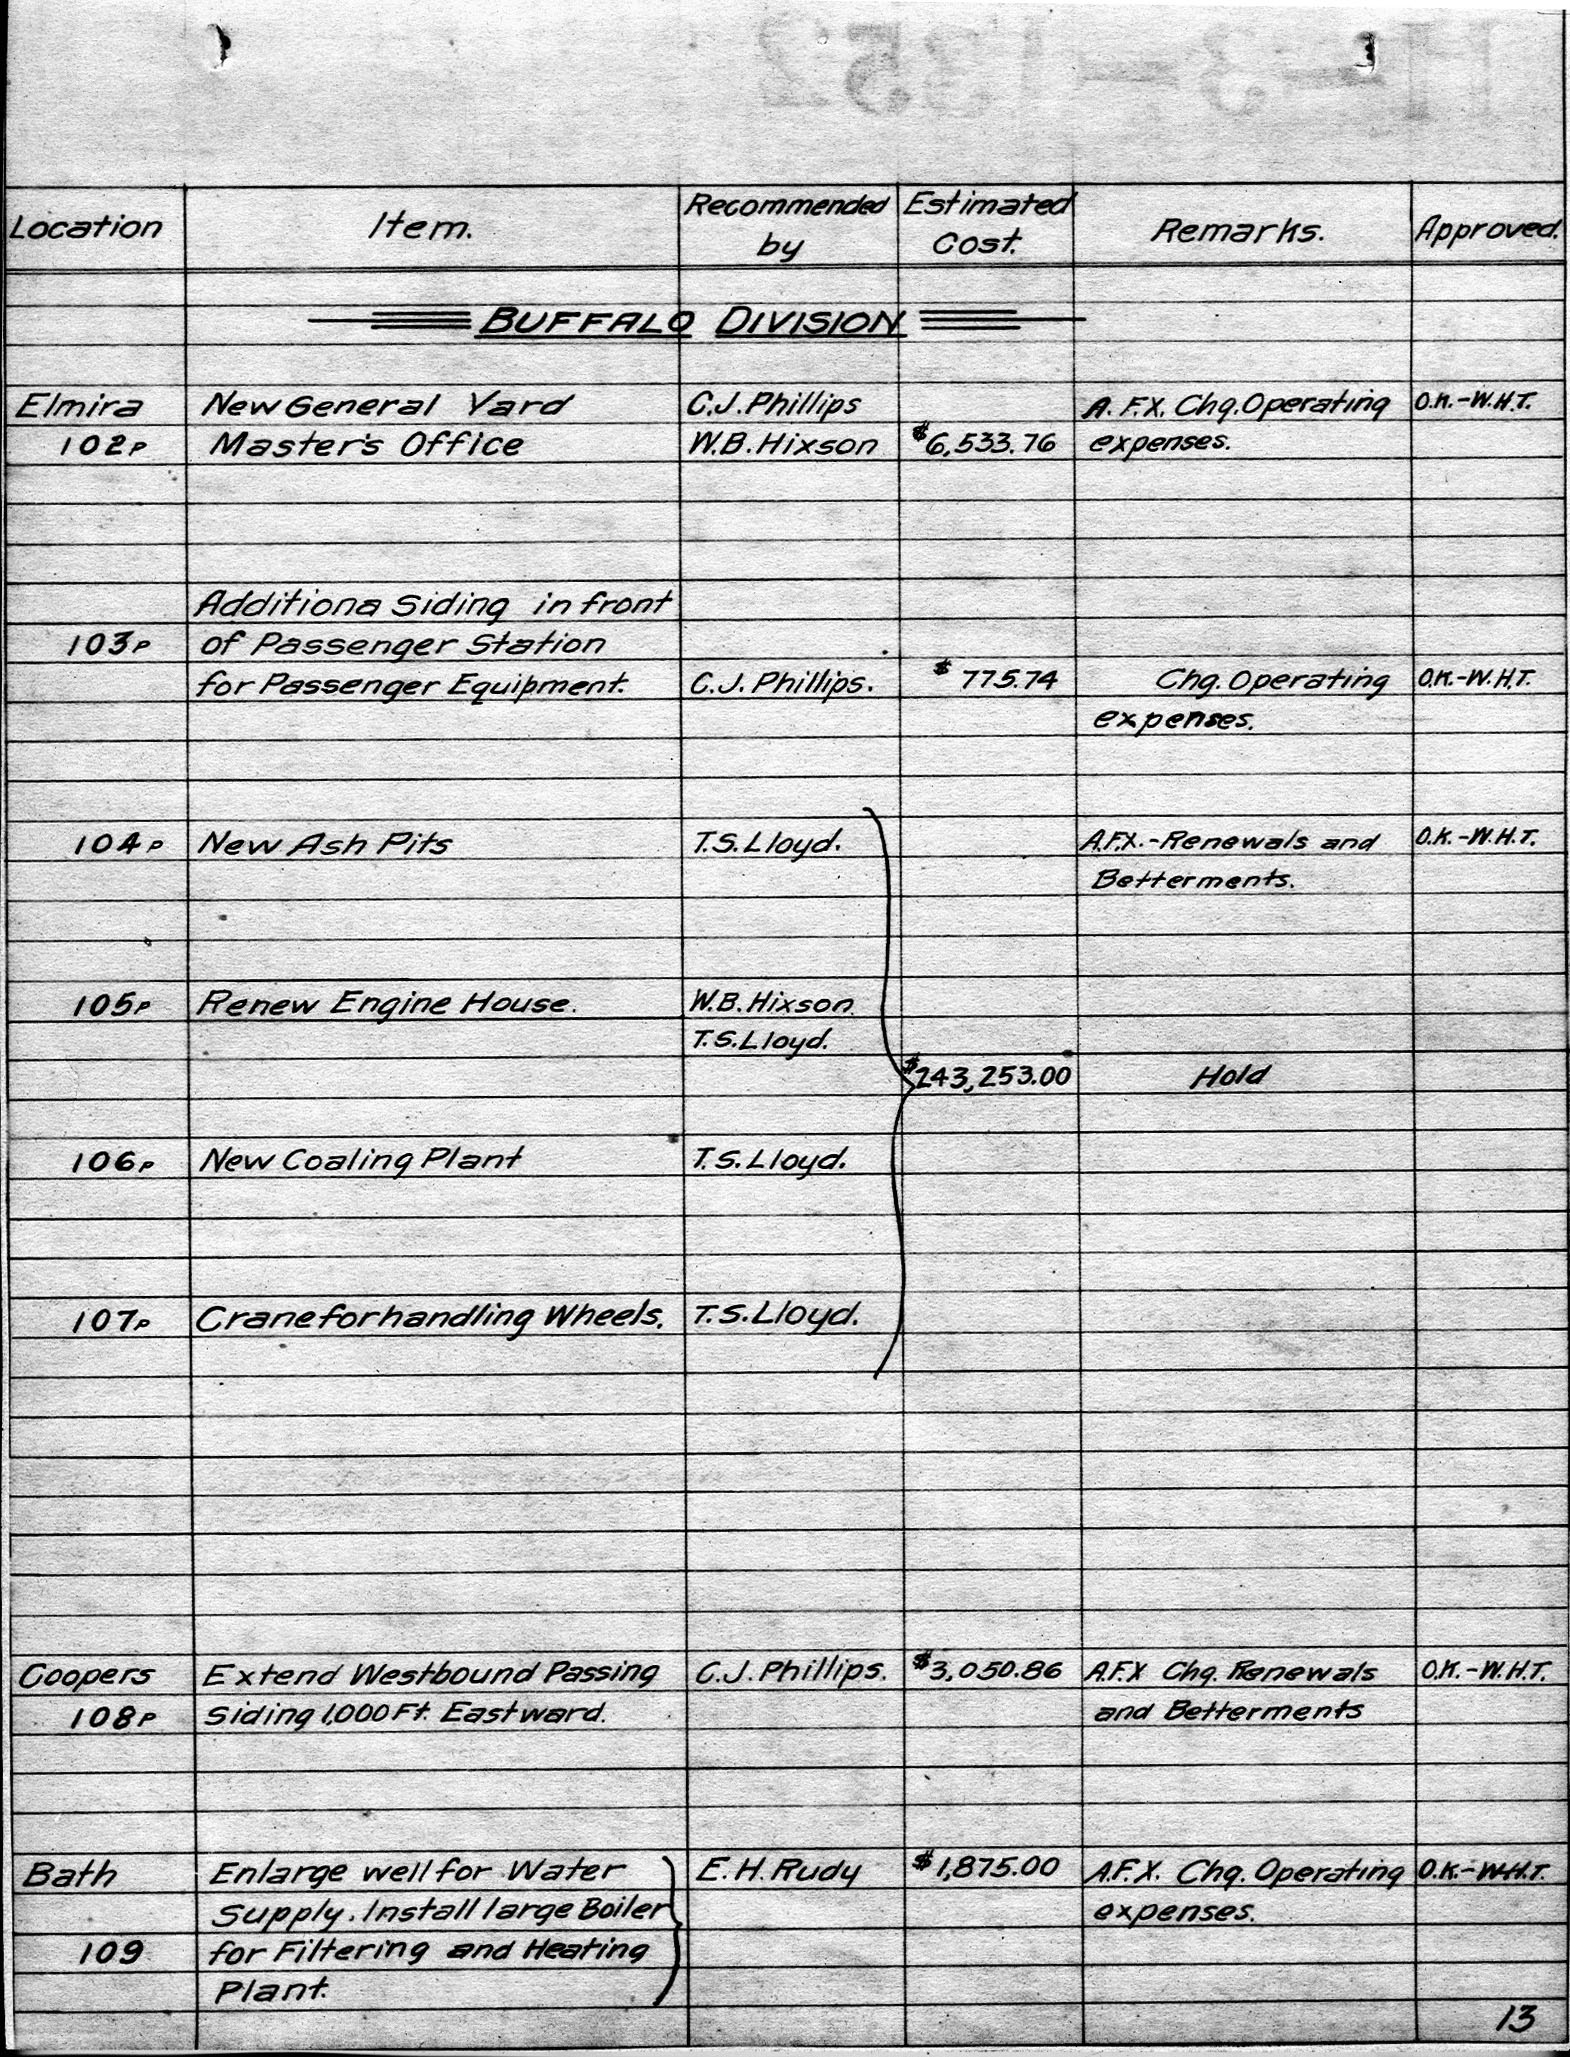 H-3-1352
Location Item. Recommended by Estimated Cost. Remarks. Approved.
BUFFALO DIVISION
Elmira New General Yard C.J. Phillips A.F.X. Chg. Operating O.K.-W.H.T.
102P Master's Office W.B. Hixson $6,533.76 expenses.
Additiona Siding in front
103P of Passenger Station
for Passenger Equipment. C.J. Phillips. $775.74 Chg. Operating O.K.-W.H.T.
expenses.
104P New Ash Pits T.S. Lloyd. A.F.X.-Renewals and O.K.-W.H.T.
Betterments.
105P Renew Engine House. W.B. Hixson.
T.S. Lloyd.
$243,253.00 Hold
106P New Coaling Plant T.S. Lloyd.
107P Crane for handling Wheels. T.S. Lloyd.
Coopers Extend Westbound Passing C.J. Phillips. $3,050.86 A.F.X Chg. Renewals O.K.-W.H.T.
108P Siding 1,000 Ft. Eastward. and Betterments
Bath Enlarge well for Water E.H. Rudy $1,875.00 A.F.X. Chg. Operating O.K.-W.H.T.
Supply. Install large Boiler expenses.
109 for Filtering and Heating
Plant.
13